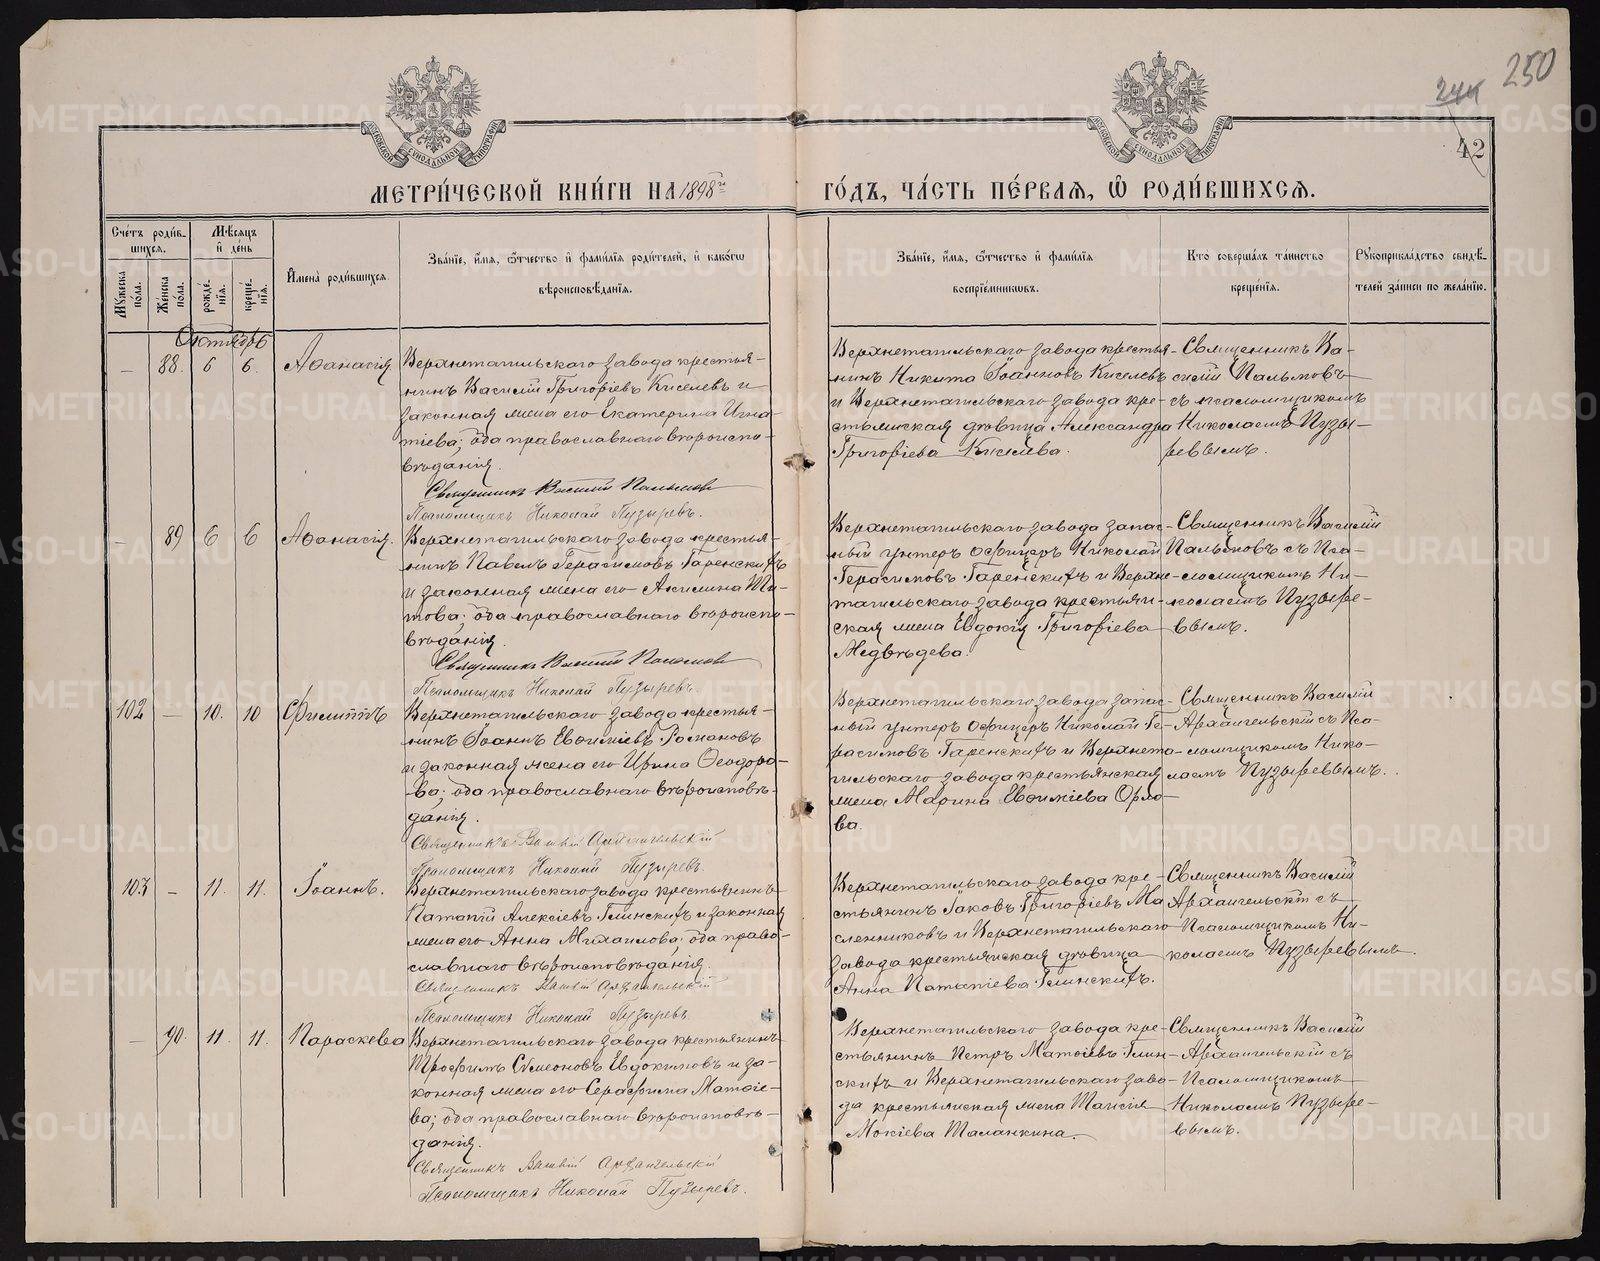 250
244
42
МОСКОВСКОЙ СѴНОДАЛЬНОЙ ТИПОГРАФІИ
МОСКОВСКОЙ СѴНОДАЛЬНОЙ ТИПОГРАФІИ
МЕТРИ́ЧЕСКОЙ КНИ́ГИ НА 1898й ГО́ДЪ, ЧА́СТЬ ПЕ́РВАѦ, Ѽ РОДИ́ВШИХСѦ.
Сче́тъ роди́в-
шихсѧ.
Мѣ́сѧцъ
и҆ де́нь
Мꙋ́жеска по́ла.
Же́нска по́ла.
рожде́-
нїѧ.
креще́-
нїѧ.
И҆мена̀ роди́вшихсѧ.
Зва́нїе, и҆́мѧ, ѻ҆́тчество и҆ фами́лїѧ роди́телей, и҆ како́гѡ
вѣроисповѣ́данїѧ.
Зва́нїе, и҆́мѧ, ѻ҆́тчество и҆ фами́лїѧ
воспрїе́мниковъ.
Кто̀ соверша́лъ та́инство
креще́нїѧ.
Рꙋкоприкла́дство свидѣ́-
телей за́писи по жела́нїю.
Октябрь
— 88. 6 6. Аѳанасія
Верхнетагильскаго завода крестья-
нинъ Василій Григоріевъ Киселевъ и
законная жена его Екатерина Игна-
тіева; оба православнаго вѣроиспо-
вѣданія.
Священникъ Василій Пальмовъ
Псаломщикъ Николай Пузыревъ.
Верхнетагильскаго завода крестья-
нинъ Никита Іоанновъ Киселевъ
и Верхнетагильскаго завода кре-
стьянская дѣвица Александра
Григоріева Киселева.
Священникъ Ва-
силій Пальмовъ
съ псаломщикомъ
Николаемъ Пузы-
ревымъ.
— 89 6 6 Аѳанасія.
Верхнетагильскаго завода крестья-
нинъ Павелъ Герасимовъ Гаренскихъ
и законная жена его Акилина Ти-
това; оба православнаго вѣроиспо-
вѣданія.
Священникъ Василій Пальмовъ
Псаломщикъ Николай Пузыревъ.
Верхнетагильскаго завода запас-
ный унтеръ офицеръ Николай
Герасимовъ Гаренскихъ и Верхне-
тагильскаго завода крестьян-
ская жена Евдокія Григоріева
Медвѣдева.
Священникъ Василій
Пальмовъ съ Пса-
ломщикомъ Ни-
колаемъ Пузыре-
вымъ.
102 — 10. 10 Филиппъ
Верхнетагильскаго завода крестья-
нинъ Іоаннъ Евѳиміевъ Романовъ
и законная жена его Ирина Ѳеодоро-
ва; оба православнаго вѣроисповѣ-
данія.
Священникъ Василій Архангельскій
Псаломщикъ Николай Пузыревъ.
Верхнетагильскаго завода запас-
ный унтеръ офицеръ Николай Ге-
расимовъ Гаренскихъ и Верхнета-
гильскаго завода крестьянская
жена Марина Евѳиміева Орло-
ва.
Священникъ Василій
Архангельскій съ Пса-
ломщикомъ Нико-
лаемъ Пузыревымъ.
103 — 11. 11. Іоаннъ.
Верхнетагильскаго завода крестьянинъ
Патапій Алексіевъ Глинскихъ и законная
жена его Анна Михаилова; оба право-
славнаго вѣроисповѣданія.
Священникъ Василій Архангельскій
Псаломщикъ Николай Пузыревъ.
Верхнетагильскаго завода кре-
стьянинъ Іаковъ Григоріевъ Ма
сленниковъ и Верхнетагильскаго
завода крестьянская дѣвица
Анна Патапіева Глинскихъ.
Священникъ Василій
Архангельскій съ
Псаломщикомъ Ни-
колаемъ Пузыревымъ.
— 90. 11. 11. Параскева
Верхнетагильскаго завода крестьянинъ
Трофимъ Сѵмеоновъ Евдокимовъ и за-
конная жена его Серафима Матѳіе-
ва; оба православнаго вѣроисповѣ-
данія.
Священникъ Василій Архангельскій
Псаломщикъ Николай Пузыревъ.
Верхнетагильскаго завода кре-
стьянинъ Петръ Матѳіевъ Глин-
скихъ и Верхнетагильскаго заво-
да крестьянская жена Таисія
Мокіева Таланкина.
Священникъ Василій
Архангельскій съ
Псаломщикомъ
Николаемъ Пузыре-
вымъ.
METRIKI.GASO-URAL.RU